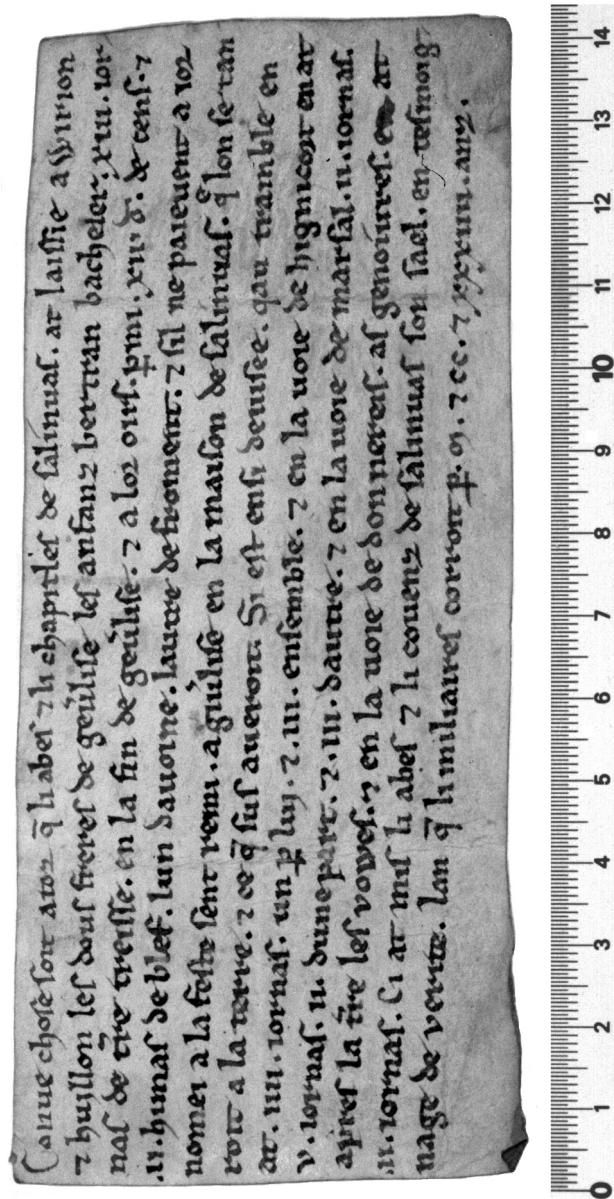 Conue chose soit a toz q̄ li abes ⁊ li chapitles de salinuas. at laissie a Wirion
⁊ huillon les dous freres de gēulise les anfanz bertran bacheler, xııı. ior
nas de t̄re treisse. en la fin de gēulise. ⁊ a loz oirs. ꝑmi. xıı. d. de cens. ⁊
.ıı. himas de blef. lun dauoine. lautre de froment. ⁊ sil ne paieuent a ioz
nomei a la feste sent remi. a gēulise en la maison de salinuas. q̄ lon se tan
roit a la terre. ⁊ ce q̄ sus aueroit. Si est ensi deuisee. qau tramble en
at. ıııı. iornas. un ꝑ luy. ⁊. ııı. ensemble. ⁊ en la uoie de hignicort en at
v. iornas. ıı. dune part. ⁊. ııı. dautre. ⁊ en la uoie de marsal. ıı. iornas.
apres la t̄re les vowes. ⁊ en la uoie de donnereis. as genoiures. en at
.ıı. iornas. Ci at mis li abes ⁊ li couenz de salinuas son sael. en tesmoig
nage de verite. lan q̄ li miliaires corroit ꝑ. m. ⁊ cc. ⁊ xxxıııı. anz.
0 1 2 3 4 5 6 7 8 9 10 11 12 13 14